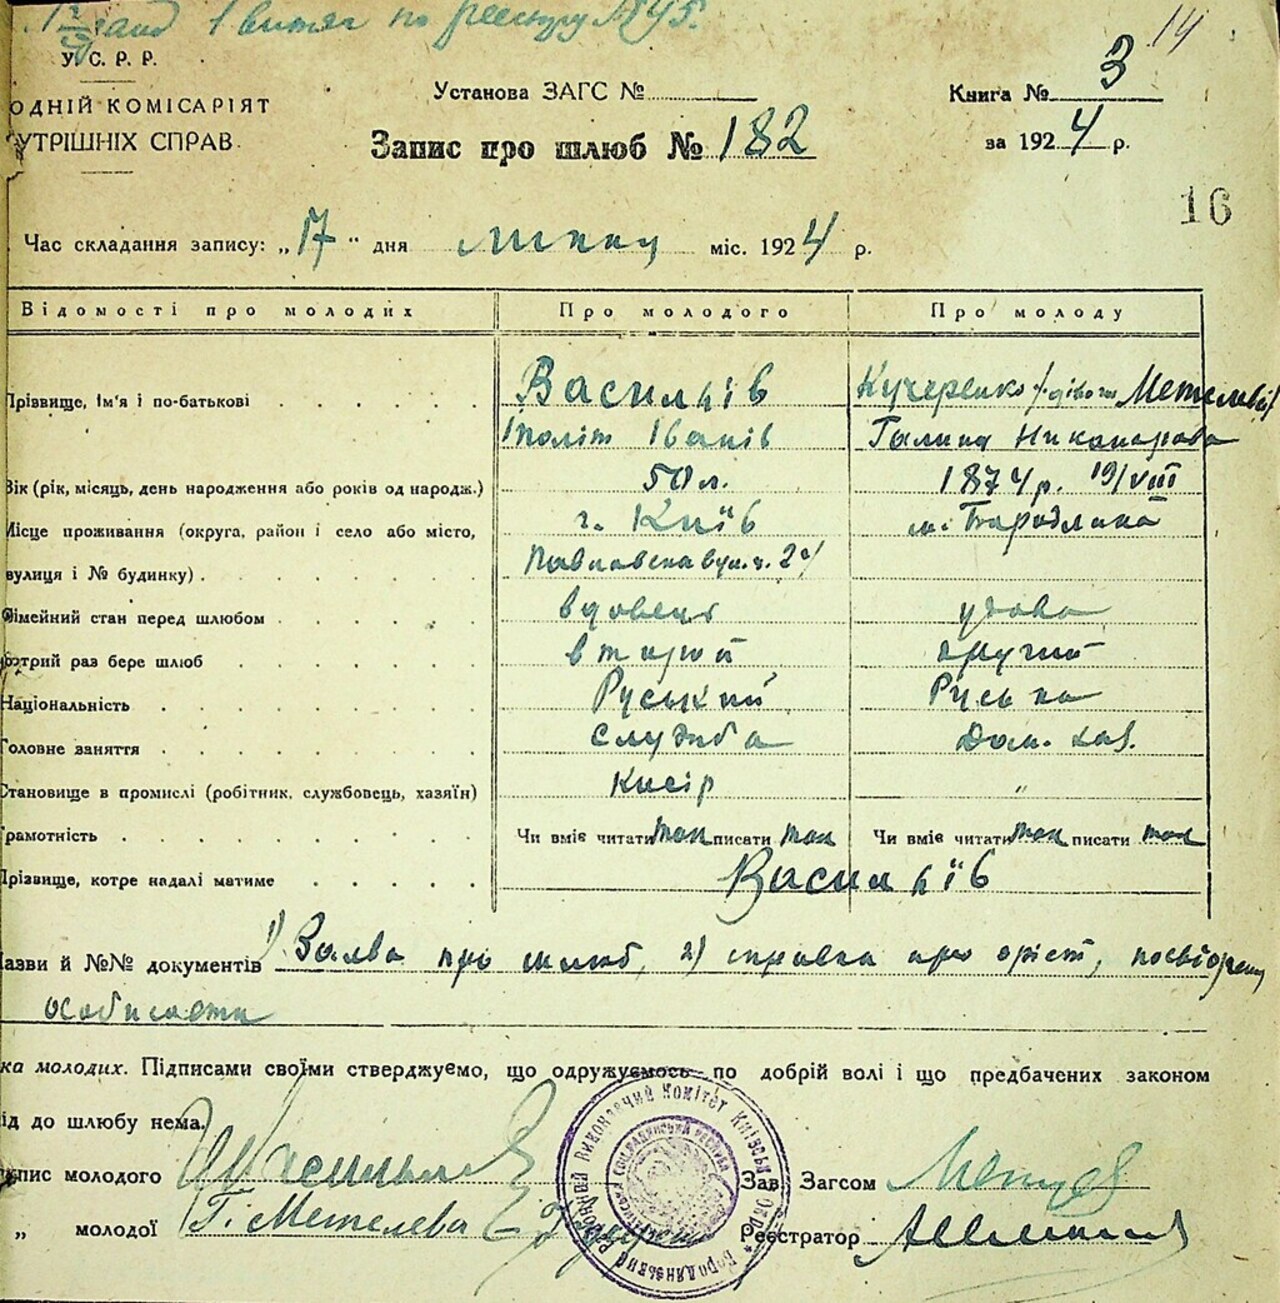 1 витяг по реестру № 45.
14
У. С. Р. Р.
ОДНІЙ КОМІСАРІЯТ
УТРІШНІХ СПРАВ.
Установа ЗАГС №
Книга № 3
Запис про шлюб № 182
за 1924 р.
16
Час складання запису: „17“ дня липня міс. 1924 р.
Відомості про молодих Про молодого Про молоду
Прізвище, ім'я і по-батькові Васильїв Кучеренко
Іполіт Іванів Галина Никанорова
Вік (рік, місяць, день народження або років од народж.) 50 л. 1874 р. 19/VIII
Місце проживання (округа, район і село або місто, г. Київ м. Бородянка
вулиця і № будинку) Павловска вул. ч. 24
Сімейний стан перед шлюбом вдовець удова
Котрий раз бере шлюб вторий другий
Національність Руський Руська
Головне заняття служба Дом. хаз.
Становище в промислі (робітник, службовець, хазяїн) Касір "
Грамотність Чи вміє читати так писати так Чи вміє читати так писати так
Прізвище, котре надалі матиме Васильїв
Назви й №№ документів 1) Заява про шлюб, 2) справка про арешт, посвідчену
особисоти
ка молодих. Підписами своїми стверджуємо, що одружуємось по добрій волі і що предбачених законом
ід до шлюбу нема.
Підпис молодого Васильев
Зав. Загсом
„ молодої Г. Метелева
Реєстратор
Районний Виконавчий Комітет Київськ. Окр.
Бородянський